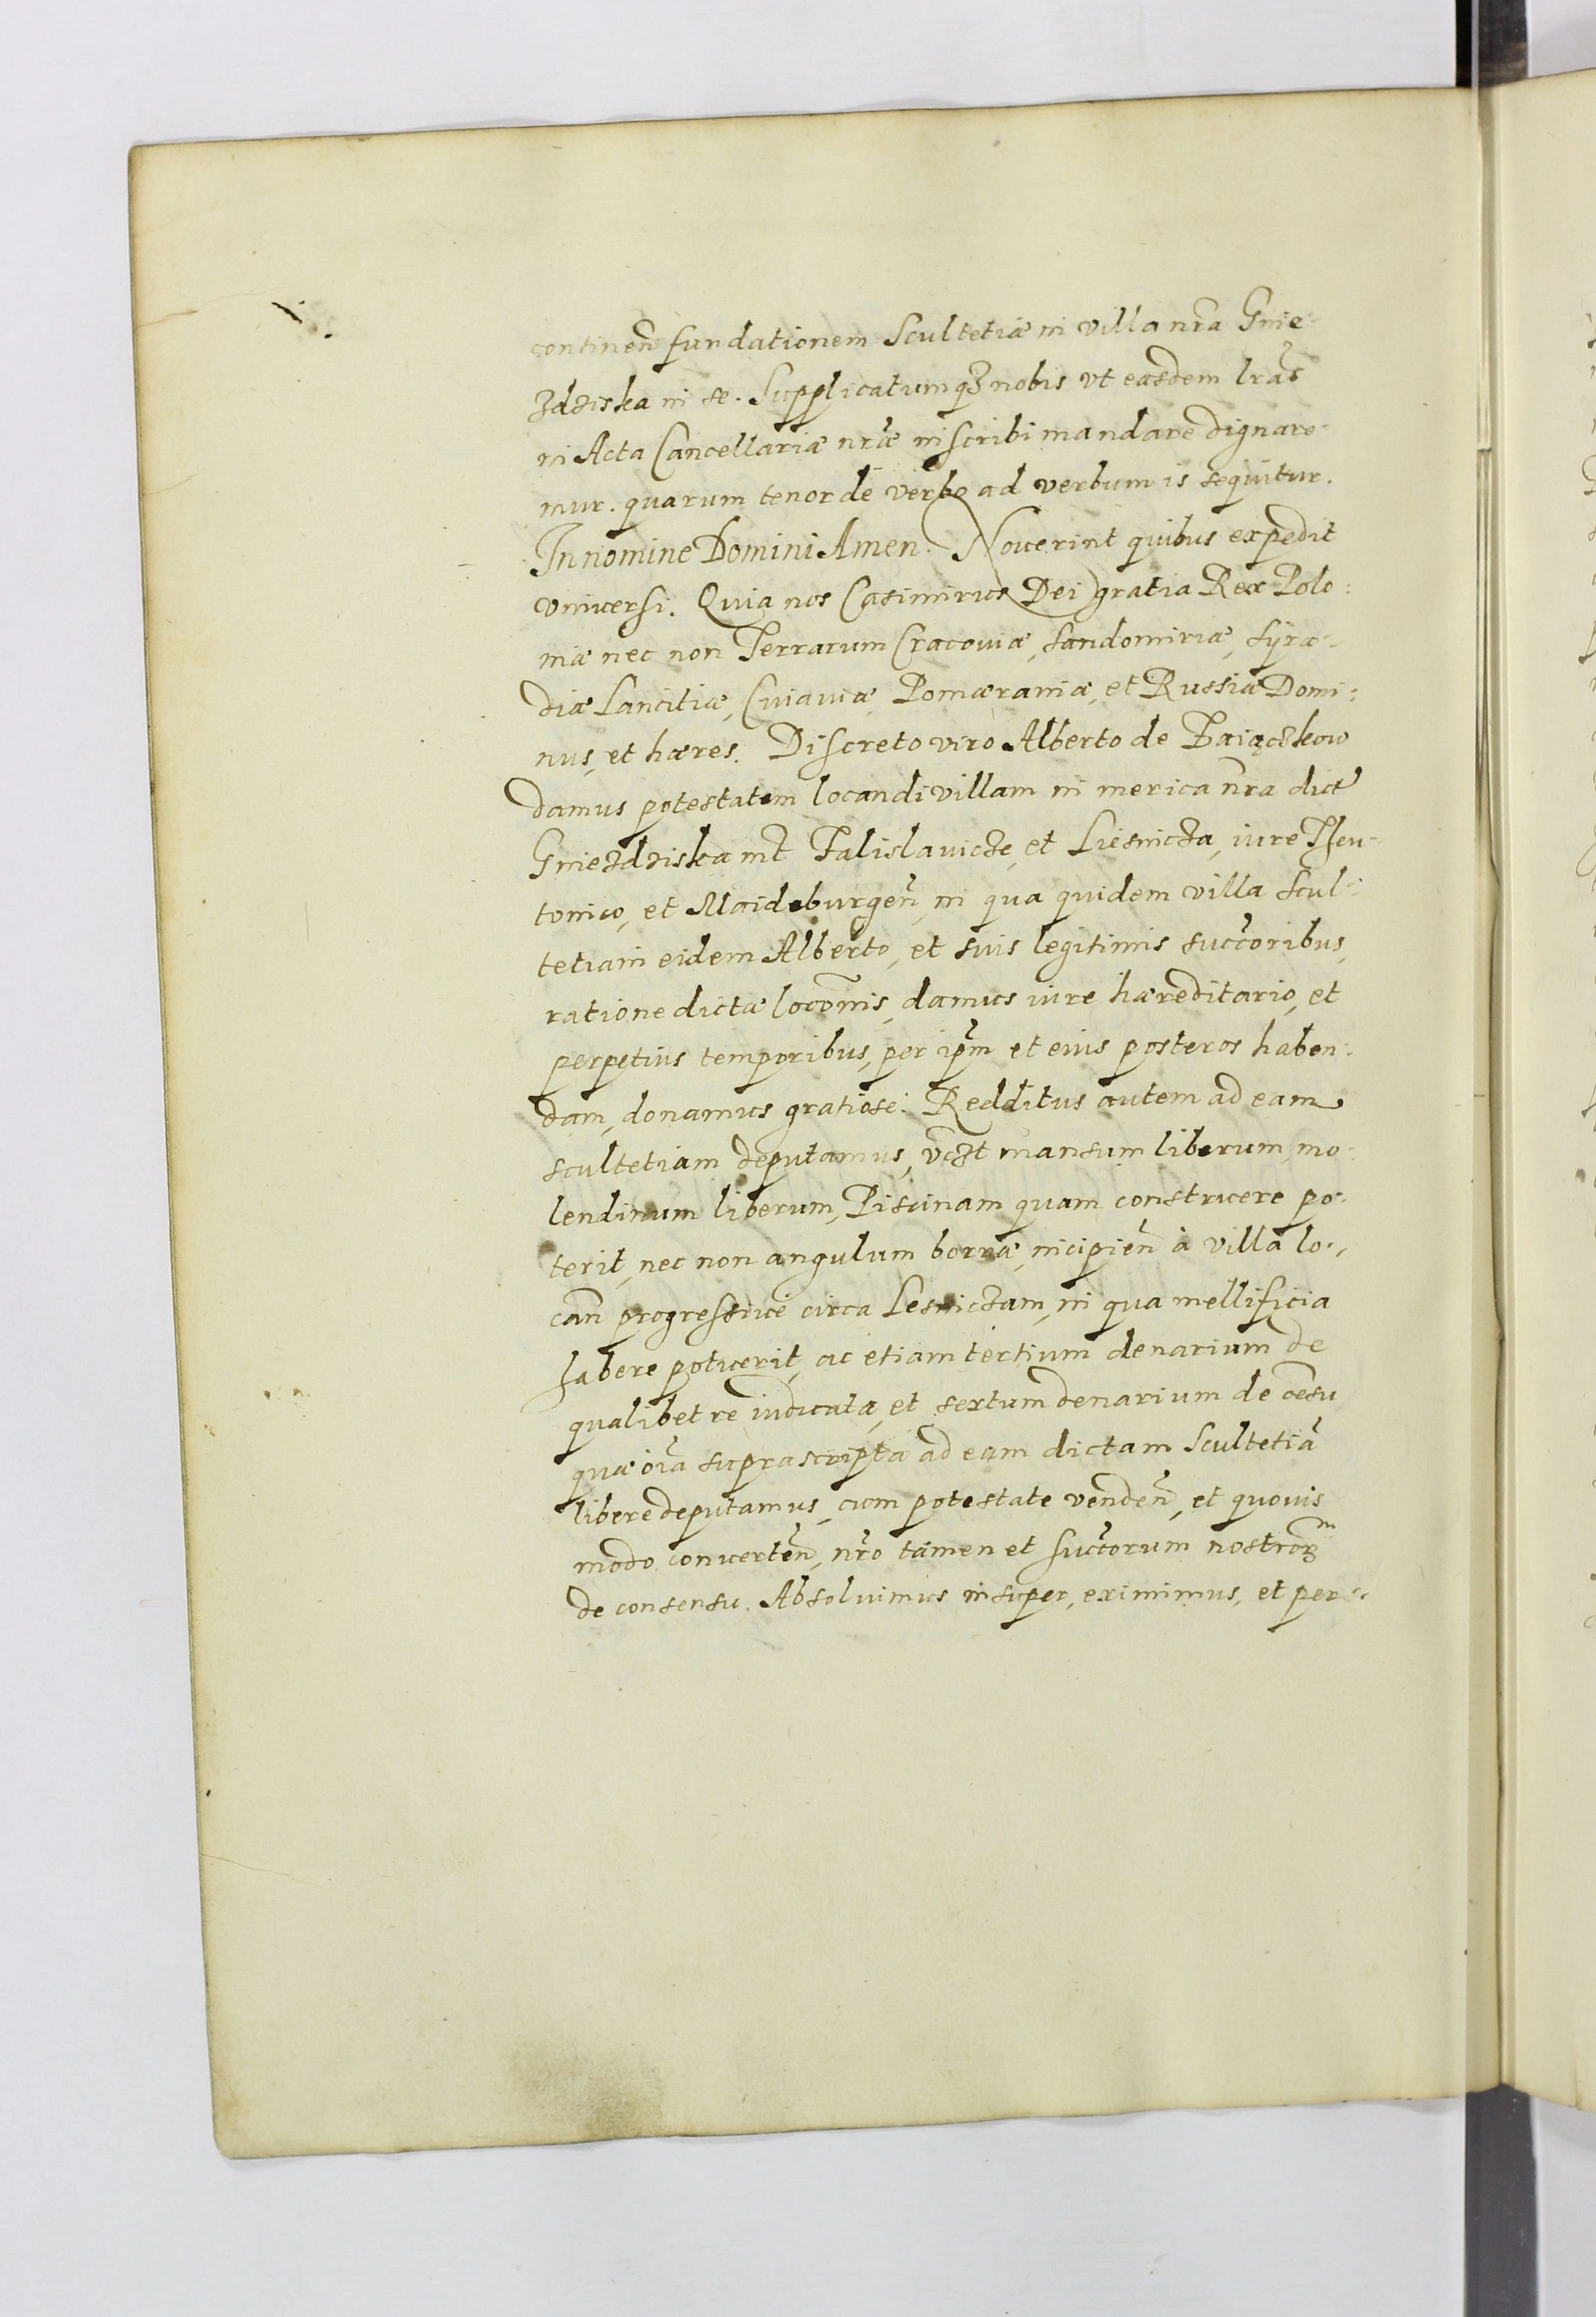 continen̄ fundationem Scultetiæ in villa nr̄a Gnie-
zdziska in se. Supplicatumqȝ nobis vt easdem lrās
in Acta Cancellariæ nrǣ inscribi mandare dignare-
mur. quarum tenor de verbo ad verbum is sequitur.
In nomine Domini Amen. Nouerint quibus expedit
vniuersi. Quia nos Casimirus Dei gratia Rex Polo:
niæ nec non Terrarum Cracouiæ, Sandomiriæ, Syra-
diæ Lancitiæ, Cuiauiæ, Pomæraniæ, et Russiæ Domi:
nus, et hæres. Discreto viro Alberto de Baiączkow
damus potestatem locandi villam in merica nr̄a dict
Gniezdziska int Falislauicze, et Liesnicza, iure Theu-
tonico, et Maideburgen̄, in qua quidem villa Scul-
tetiam eidem Alberto, et suis legitimis succoribus,
ratione dictæ locōnis, damus iure hæreditario, et
perpetuis temporibus, per ipm̄ et eius posteros haben:
dam, donamus gratiose. Redditus autem ad eam
scultetiam deputamus, vczt mansum liberum, mo-
lendinum liberum, Piscinam quam construere po-
terit, nec non angulum borræ, incipien̄ à villa lo-
can̄ progressiue circa Lesniczam, in qua mellificia
habere potuerit, ac etiam tertium denarium de
qualibet re iudicata, et sextum denarium de cēsu
quæ oīa suprascripta ad eam dictam Scultetiā
libere deputamus, cum potestate venden̄, et quouis
modo conuerten̄, nrō tamen et succorum nostrorꝝ
de consensu. Absoluimus insuper, eximimus, et per-